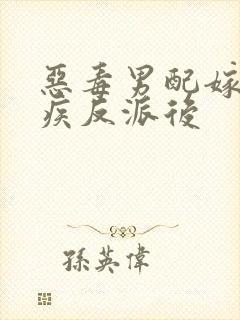 惡毒男配嫁
疾反派後
孫英偉